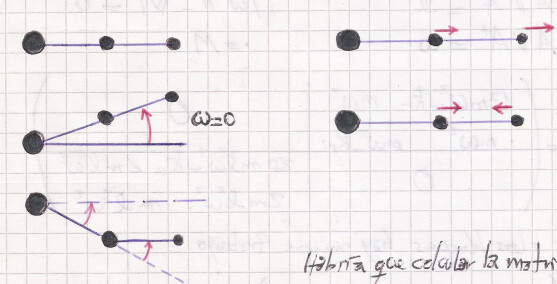 ω=0
Habría que calcular la matri